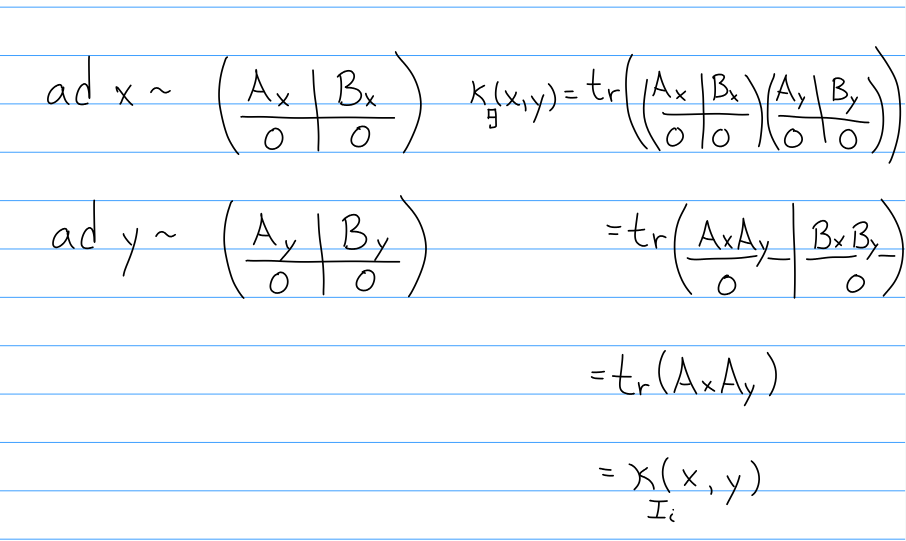 ad x ~ (A_x | B_x / 0 | 0) κ_𝔤(x,y) = tr((A_x | B_x / 0 | 0)(A_y | B_y / 0 | 0))
ad y ~ (A_y | B_y / 0 | 0) = tr(A_xA_y | B_xB_y / 0 | 0)
= tr(A_xA_y)
= κ_{I_i}(x, y)